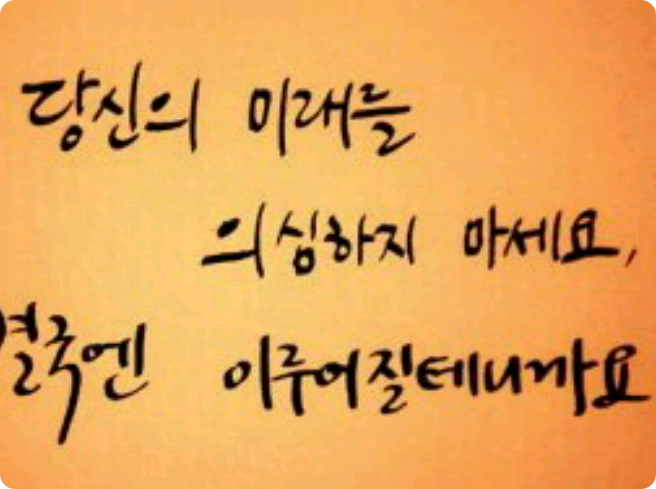 당신의 미래를
의심하지 마세요,
결국엔 이루어질테니까요